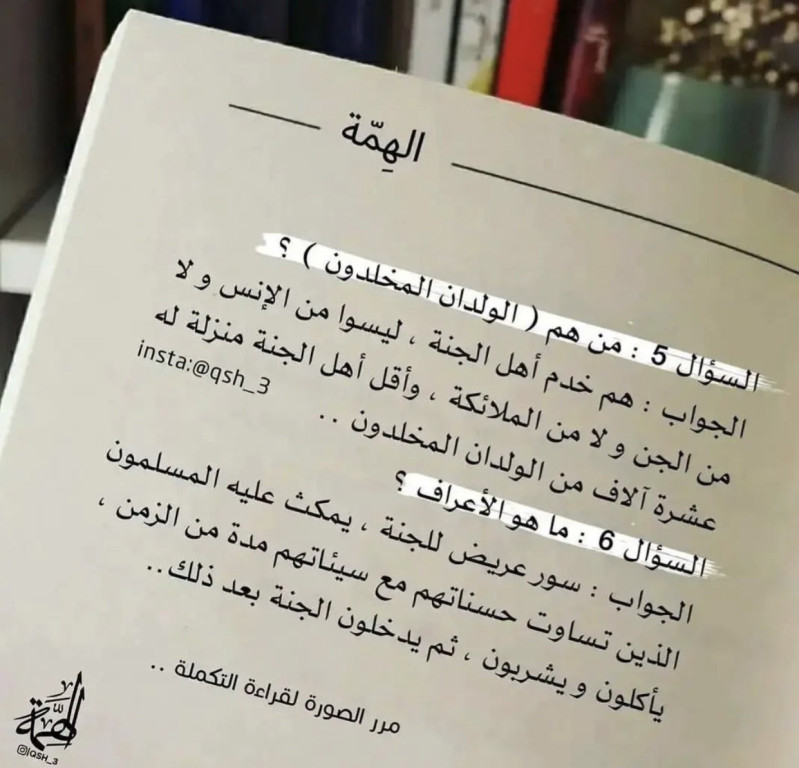 الهِمّة
السؤال 5 : من هم ( الولدان المخلدون ) ؟
الجواب : هم خدم أهل الجنة ، ليسوا من الإنس و لا
من الجن و لا من الملائكة ، وأقل أهل الجنة منزلة له
عشرة آلاف من الولدان المخلدون ..
insta:@qsh_3
السؤال 6 : ما هو الأعراف ؟
الجواب : سور عريض للجنة ، يمكث عليه المسلمون
الذين تساوت حسناتهم مع سيئاتهم مدة من الزمن ،
يأكلون و يشربون ، ثم يدخلون الجنة بعد ذلك..
مرر الصورة لقراءة التكملة ..
الهمّة
@QSH_3